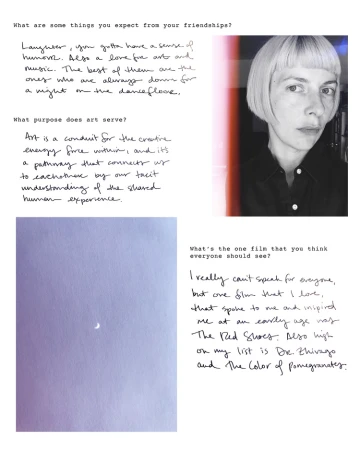 What are some things you expect from your friendships?
Laughter, you gotta have a sense of
humor. Also a love for art and
music. The best of them are the
ones who are always down for
a night on the dancefloor.
What purpose does art serve?
Art is a conduit for the creative
energy force within, and it's
a pathway that connects us
to eachother by our tacit
understanding of the shared
human experience.
What's the one film that you think
everyone should see?
I really can't speak for everyone,
but one film that I love,
that spoke to me and inspired
me at an early age was
The Red Shoes. Also high
on my list is Dr. Zhivago
and The Color of Pomegranates.